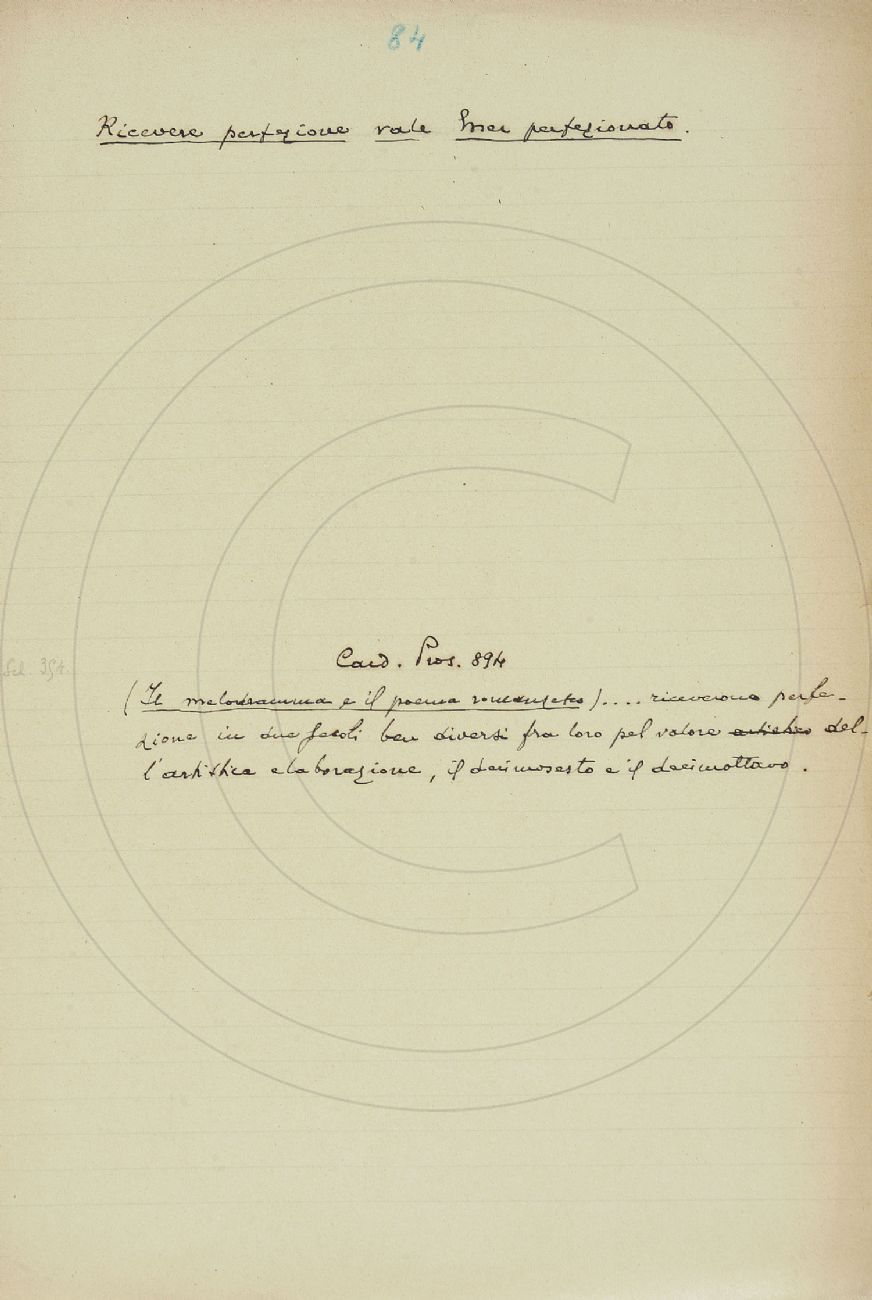 84
Ricevere perfezione vale Esser perfezionato.
Card. Pros. 894
(Il melodramma e il poema romanzesco).... riceverono perfe-
zione in due secoli ben diversi fra loro pel valore artistico del-
l'artistica elaborazione, il decimosesto e il decimottavo.